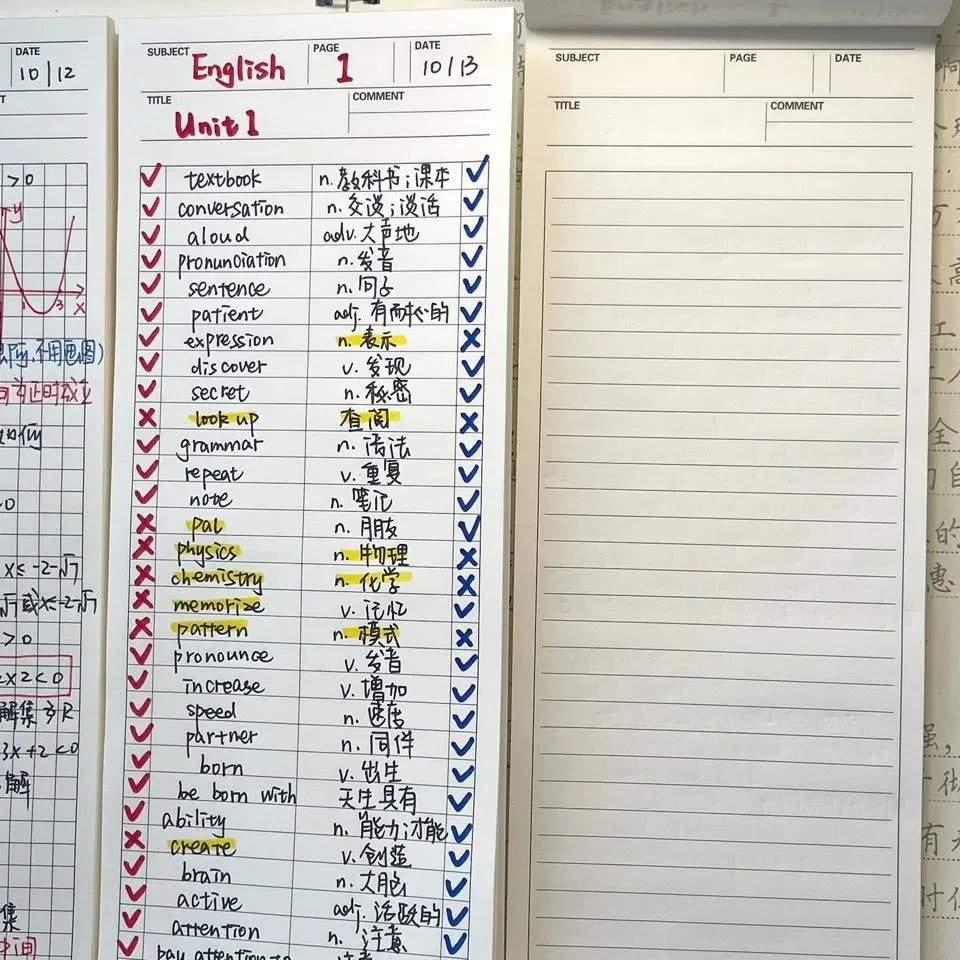 DATE
10/12
>0
y
1 3 x
如何
x≤-2-√7
>0
解集为R
3x+2<0
解
集
SUBJECT English PAGE 1 DATE 10/13
TITLE Unit 1 COMMENT
✓ textbook n. 教科书;课本 ✓
✓ conversation n. 交谈;谈话 ✓
✓ aloud adv. 大声地 ✓
✓ pronunciation n. 发音 ✓
✓ sentence n. 句子 ✓
✓ patient adj. 有耐心的 ✓
✓ expression n. 表示 ✗
✓ discover v. 发现 ✓
✓ secret n. 秘密 ✓
✗ look up 查阅 ✗
✓ grammar n. 语法 ✓
✓ repeat v. 重复 ✓
✓ note n. 笔记 ✓
✗ pal n. 朋友 ✓
✗ physics n. 物理 ✗
✗ chemistry n. 化学 ✗
✗ memorize v. 记忆 ✓
✗ pattern n. 模式 ✗
✓ pronounce v. 发音 ✓
✓ increase v. 增加 ✓
✓ speed n. 速度 ✓
✓ partner n. 同伴 ✓
✓ born v. 出生 ✓
✓ be born with 天生具有 ✓
✓ ability n. 能力;才能 ✓
✗ create v. 创造 ✓
✓ brain n. 大脑 ✓
✓ active adj. 活跃的 ✓
✓ attention n. 注意 ✓
✓ pay attention to
SUBJECT PAGE DATE
TITLE COMMENT